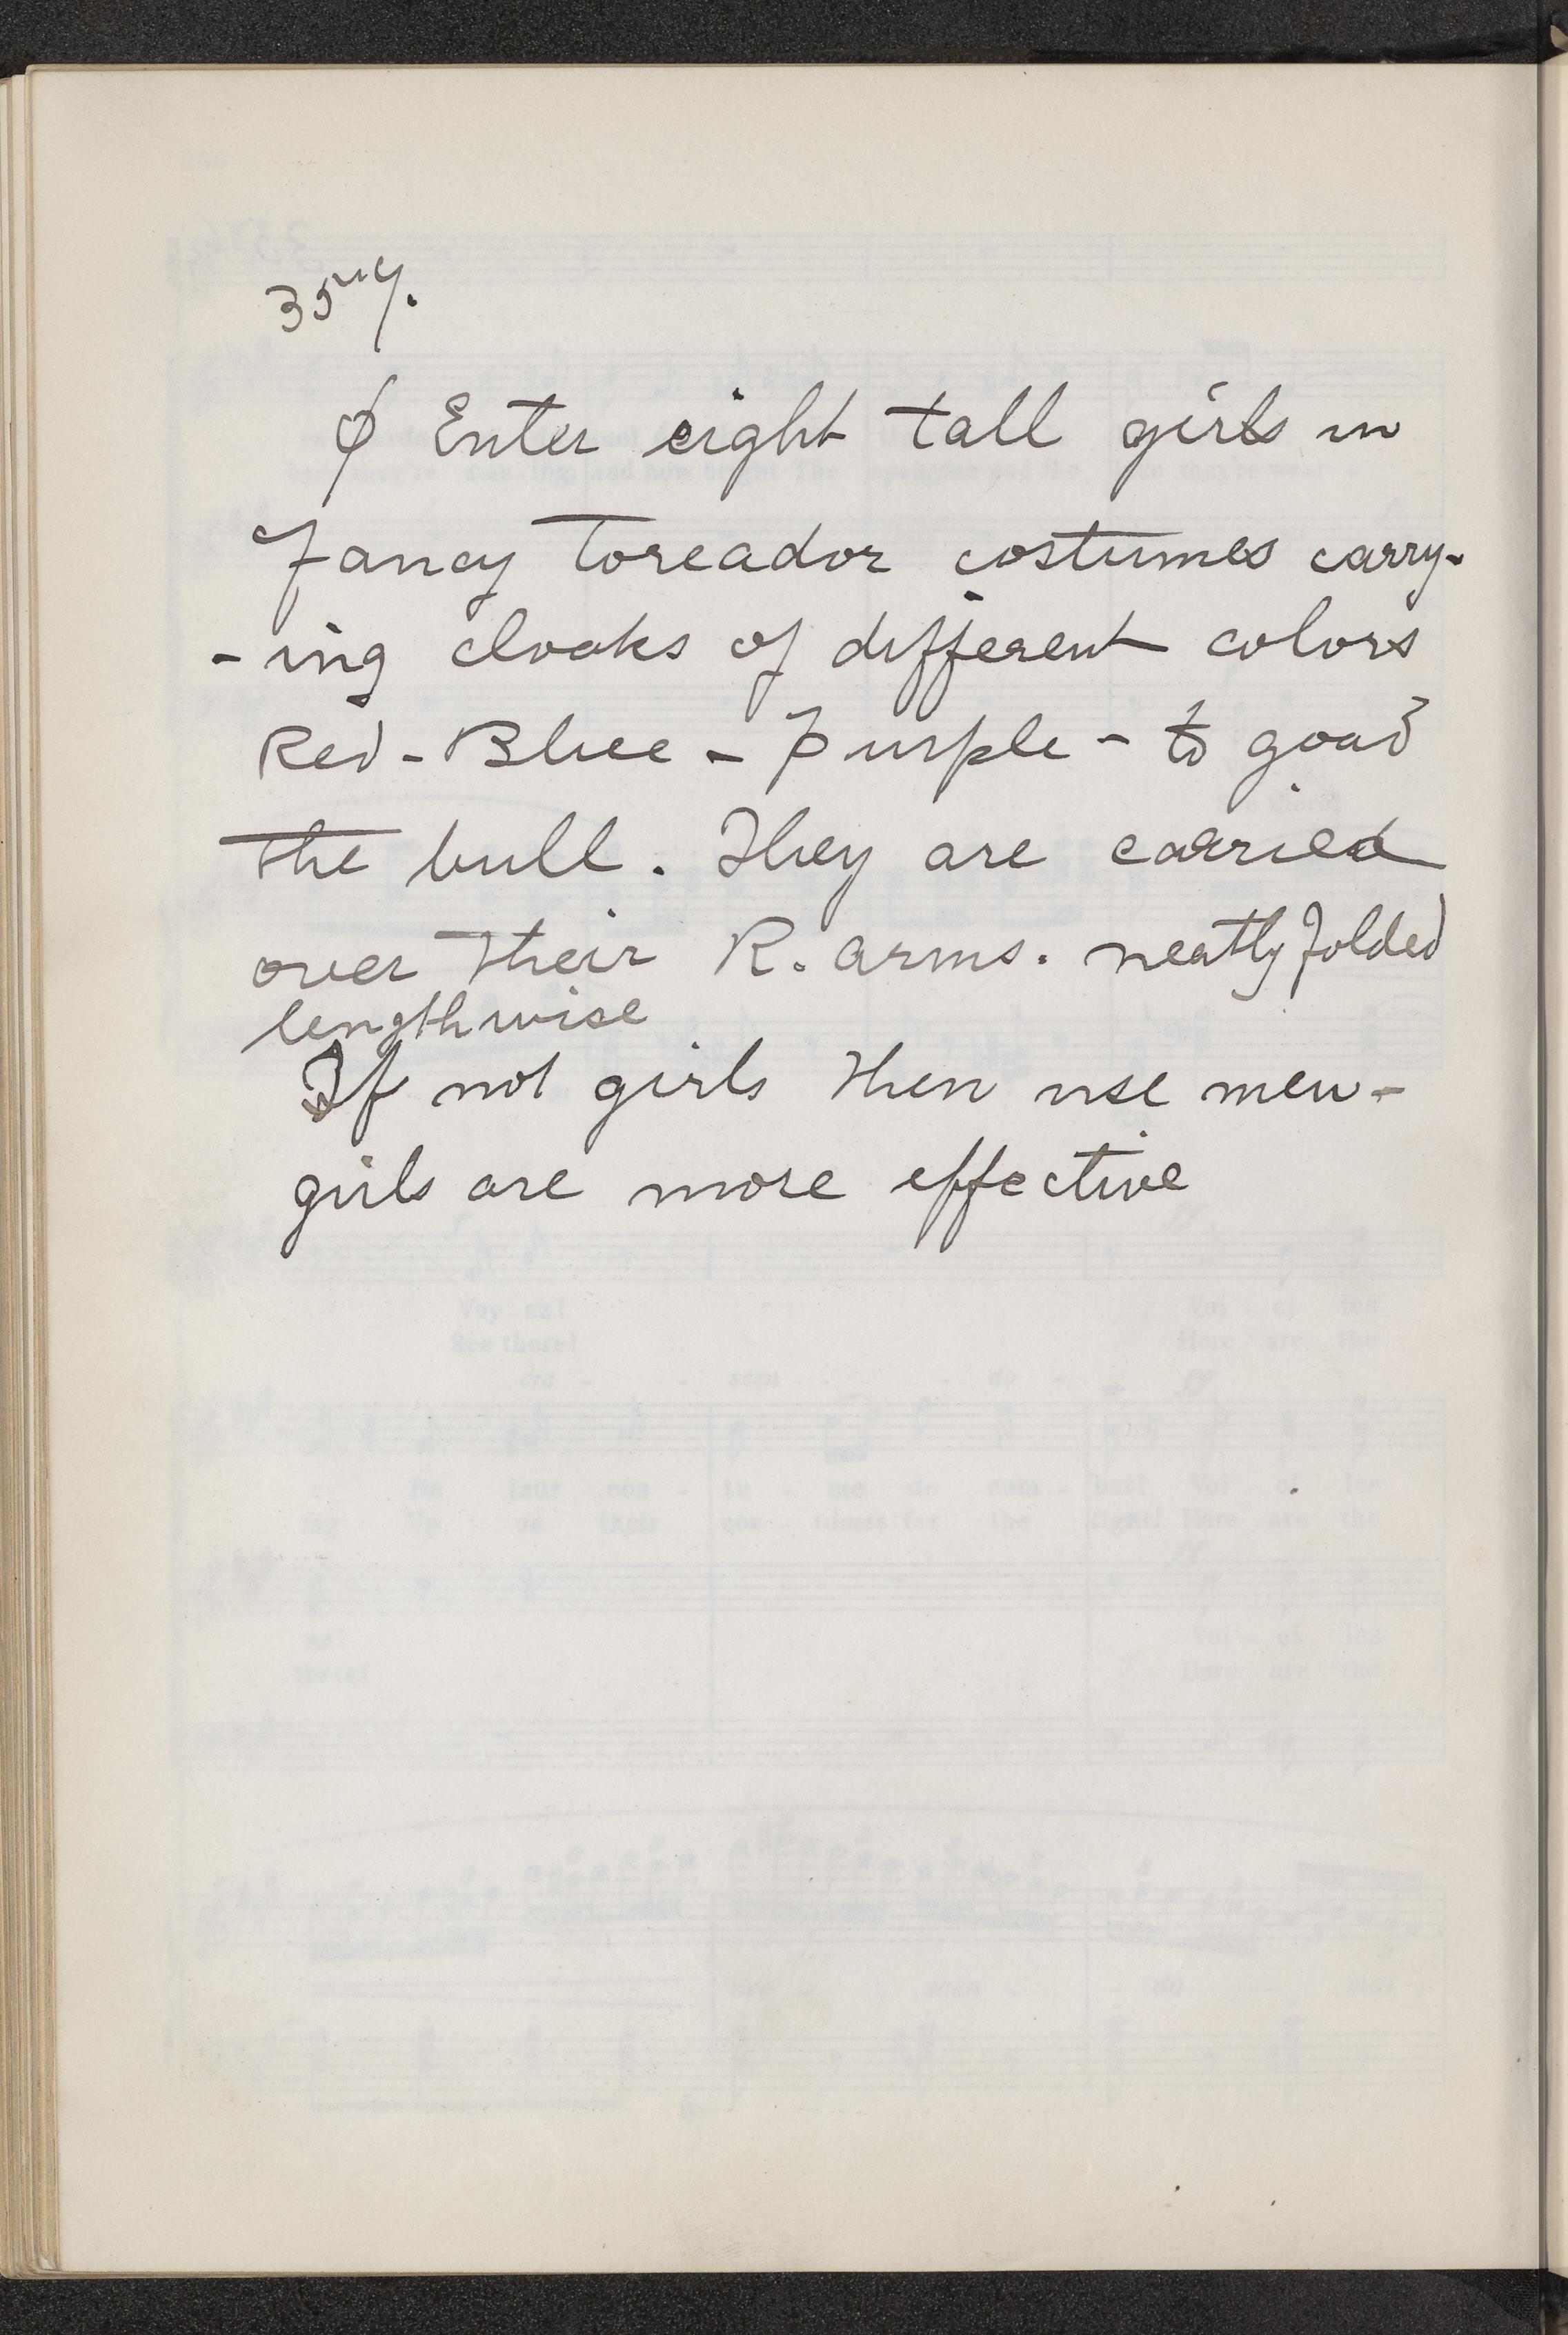 35
φ Enter eight tall girls in
fancy Toreador costumes carry-
-ing cloaks of different colors
Red - Blue - Purple - to goad
the bull. They are carried
over their R. arms. neatly folded
lengthwise
If not girls then use men -
girls are more effective